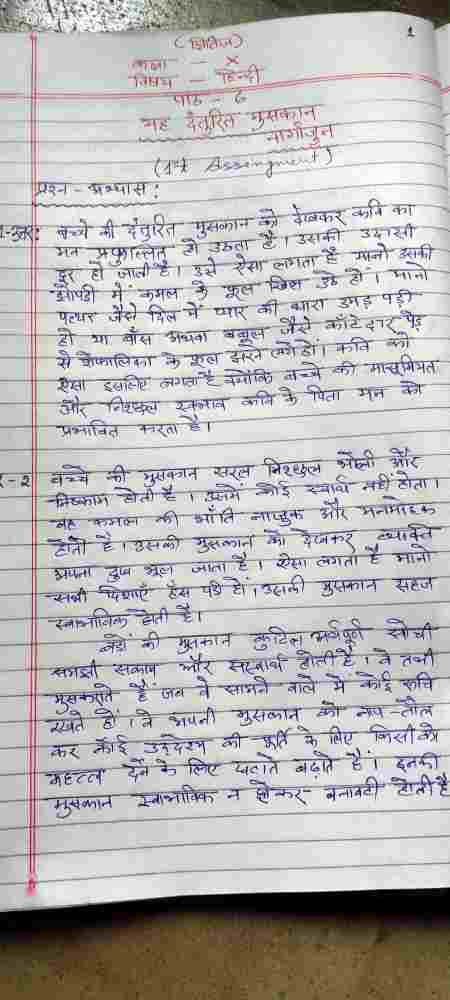 1
(क्षितिज)
कक्षा - X
विषय - हिन्दी
पाठ - 6
यह दंतुरित मुसकान
नागार्जुन
(1st Assingment)
प्रश्न - अभ्यास :
1-उत्तर: बच्चे की दंतुरित मुसकान को देखकर कवि का
मन प्रफुल्लित हो उठता है। उसकी उदासी
दूर हो जाती है। उसे ऐसा लगता है मानो उसकी
झोपड़ी में कमल के फूल खिल उठे हों। मानो
पत्थर जैसे दिल में प्यार की धारा उमड़ पड़ी
हो या बाँस अथवा बबूल जैसे काँटेदार पेड़
से शेफालिका के फूल झरने लगे हों। कवि को
ऐसा इसलिए लगता है क्योंकि बच्चे की मासूमियत
और निश्छल स्वभाव कवि के पिता मन को
प्रभावित करता है।
2 बच्चे की मुसकान सरल निश्छल भोली और
निष्काम होती है। उसमें कोई स्वार्थ नहीं होता।
वह कमल की भाँति नाजुक और मनमोहक
होती है। उसकी मुसकान को देखकर व्यक्ति
अपना दुख भूल जाता है। ऐसा लगता है मानो
सभी दिशाएँ हँस पड़ी हों। उसकी मुसकान सहज
स्वाभाविक होती है।
बड़ों की मुसकान कुटिल अर्थपूर्ण सोची
समझी सकाम और सस्वार्थ होती है। वे तभी
मुसकाते हैं जब वे सामने वाले में कोई रूचि
रखते हों। वे अपनी मुसकान को नाप-तौल
कर कोई उद्देश्य की पूर्ति के लिए किसी को
महत्त्व देने के लिए घटाते बढ़ाते हैं। इनकी
मुसकान स्वाभाविक न होकर बनावटी होती है